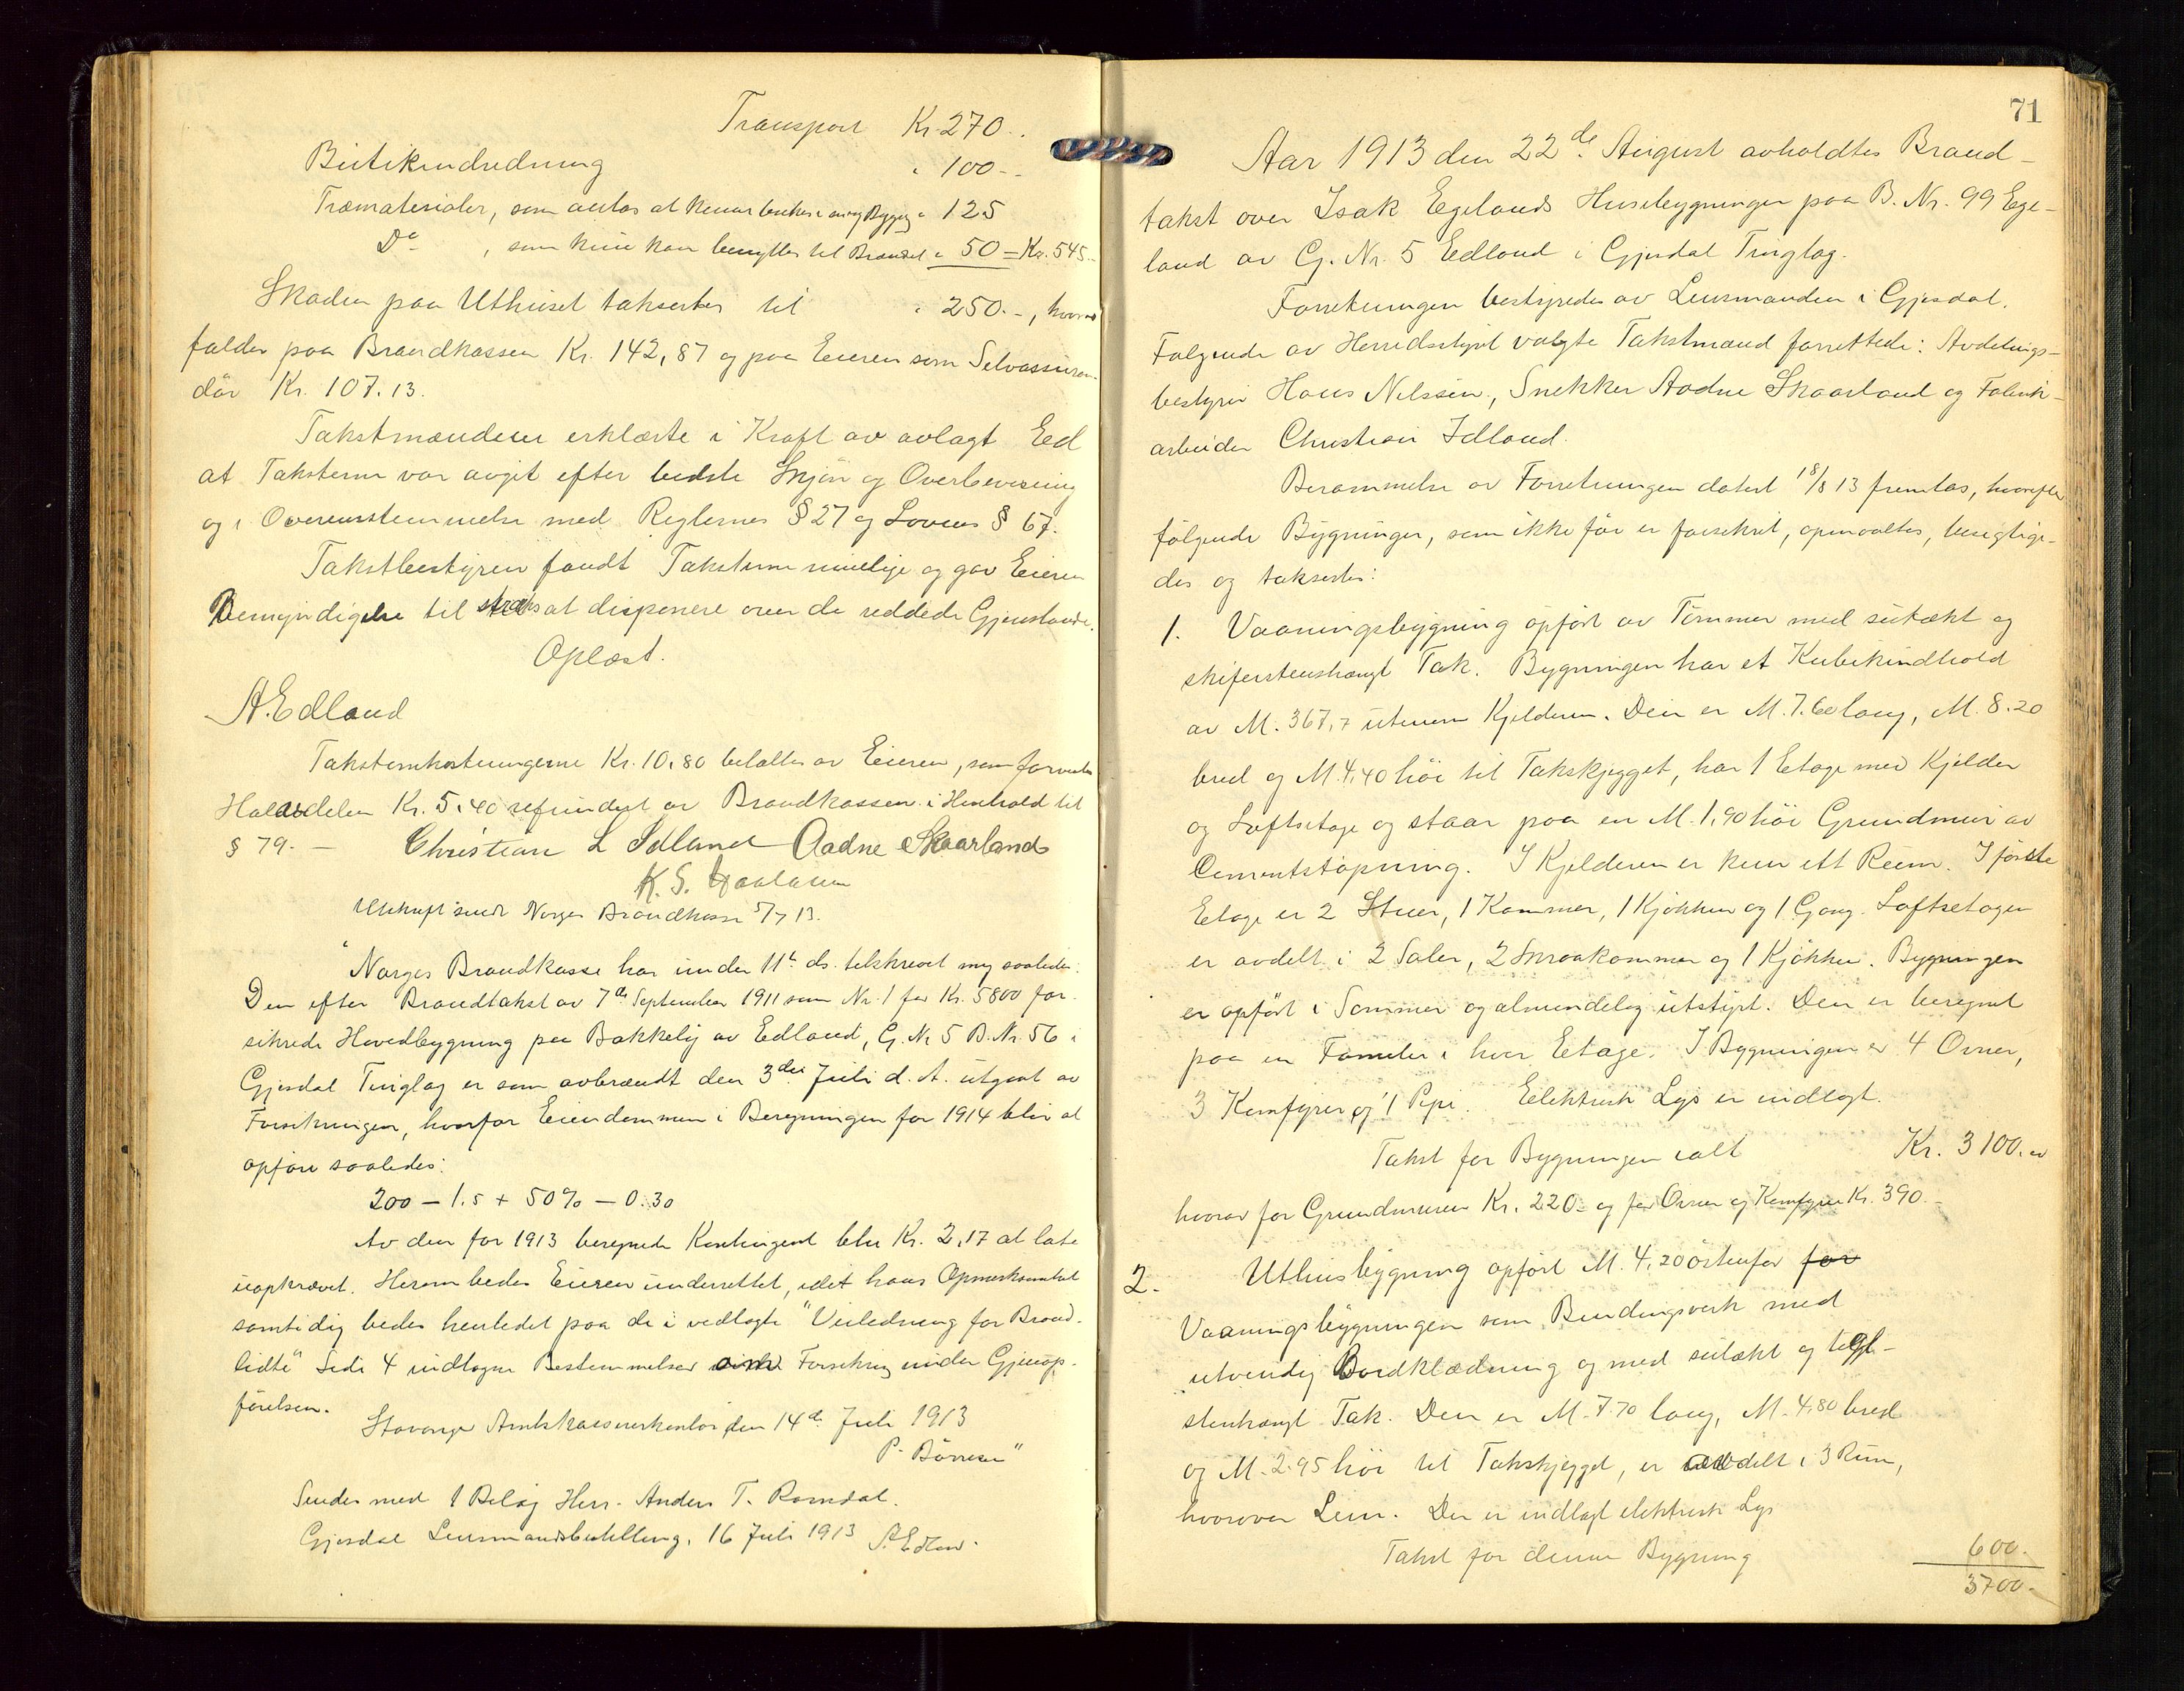 Transport Kr. 270.-
Butikindredning " 100.-
Træmaterialer, som antas at kunne brukes i ny Bygg. " 125
Do , som kun kan benyttes til Brændsel " 50 = Kr. 545.-
Skaden paa Uthuset taksertes til " 250.-, hvorav
falder paa Brandkassen Kr. 142,87 og paa Eieren som Selvassuran-
dör Kr. 107.13.
Takstmændene erklærte i Kraft av avlagt Eed
at Taksterne var avgit efter bedste Skjön og Overbevisning
og i Overensstemmelse med Reglernes § 27 og Lovens § 67.
Takstbestyreren fandt Taksterne rimelige og gav Eieren
Bemyndigelse til straks at disponere over de reddede Gjenstande.
Oplæst.
A. Edland
Takstomkostningerne Kr. 10,80 betaltes av Eieren, som forventes
Halvdelen Kr. 5,40 refundert av Brandkassen i Henhold til
§ 79. - Christian L Idland Aadne Skaarland
K. S.
Utskrift sendt Norges Brandkasse 5/7 13.
"Norges Brandkasse har under 11te ds. tilskrevet mig saaledes:
Den efter Brandtakst av 7de September 1911 som Nr. 1 for Kr. 5800 for-
sikrede Hovedbygning paa Bakkely av Edland, G. Nr 5 B. Nr. 56 i
Gjesdal Tinglag er som avbrændt den 3die Juli d. A. utgaat av
Forsikringen, hvorfor Eiendommen i Beregningen for 1914 blir at
opföre saaledes:
200 - 1.5 + 50% - 0.30
Av den for 1913 beregnede Kontingent blir Kr. 2,17 at late
uopkrævet. Herom bedes Eieren underrettet, idet hans Opmerksomhet
samtidig bedes henledet paa de i vedlagte "Veiledning for Brand-
lidte" Side 4 indtagne Bestemmelser om Forsikring under Gjenop-
förelsen.
Stavanger Amtskasserkontor, den 14de Juli 1913
P. Börresen"
Sendes med 1 Bilag Herr Anders T. Ramdal.
Gjesdal Lensmandsbestilling, 16 Juli 1913 A. Edland.
71
Aar 1913 den 22de August avholdtes Brand-
takst over Isak Egelands Husebygninger paa B. Nr. 99 Ege-
land av G. Nr. 5 Edland i Gjesdal Tinglag.
Forretningen bestyredes av Lensmanden i Gjesdal.
Følgende av Herredsstyret valgte Takstmænd forrettede: Avdelings-
bestyrer Hans Nilssen, Snekker Aadne Skaarland og Fabrik-
arbeider Christian Idland.
Berammelse av Forretningen datert 18/8 13 fremlas, hvorefter
følgende Bygninger, som ikke för er forsikret, opmaaltes, besigtige-
des og taksertes:
1. Vaaningsbygning opfört av Tömmer med sutækt og
skiferstenshængt Tak. Bygningen har et Kubikindhold
av M. 367,7 utenom Kjelderen. Den er M. 7.60 lang, M. 8.20
bred og M. 4,40 höi til Takskjegget, har 1 Etage med Kjelder
og Loftsetage og staar paa en M. 1,90 höi Grundmur av
Cementstöpning. I Kjelderen er kun ett Rum. I förste
Etage er 2 Stuer, 1 Kammer, 1 Kjökken og 1 Gang. Loftsetagen
er avdelt i 2 Saler, 2 Smaakammer og 1 Kjökken. Bygningen
er opfört i Sommer og almindelig utstyrt. Den er beregnet
paa en Familie i hver Etage. I Bygningen er 4 Ovner,
3 Komfyrer og 1 Pipe. Elektrisk Lys er indlagt.
Takst for Bygningen ialt Kr. 3100.00
hvorav for Grundmuren Kr. 220.- og for Ovner og Komfyrer Kr. 390.-
2. Uthusbygning opfört M. 4,20 östenfor for
Vaaningsbygningen som Bindingsverk med
utvendig Bordklædning og med sutækt og tegl-
stenhængt Tak. Den er M. 7.70 lang, M. 4,80 bred
og M. 2.95 höi til Takskjegget, er avdelt i 3 Rum,
hvorover Lem. Der er indlagt elektrisk Lys
Takst for denne Bygning 600.-
3700.-